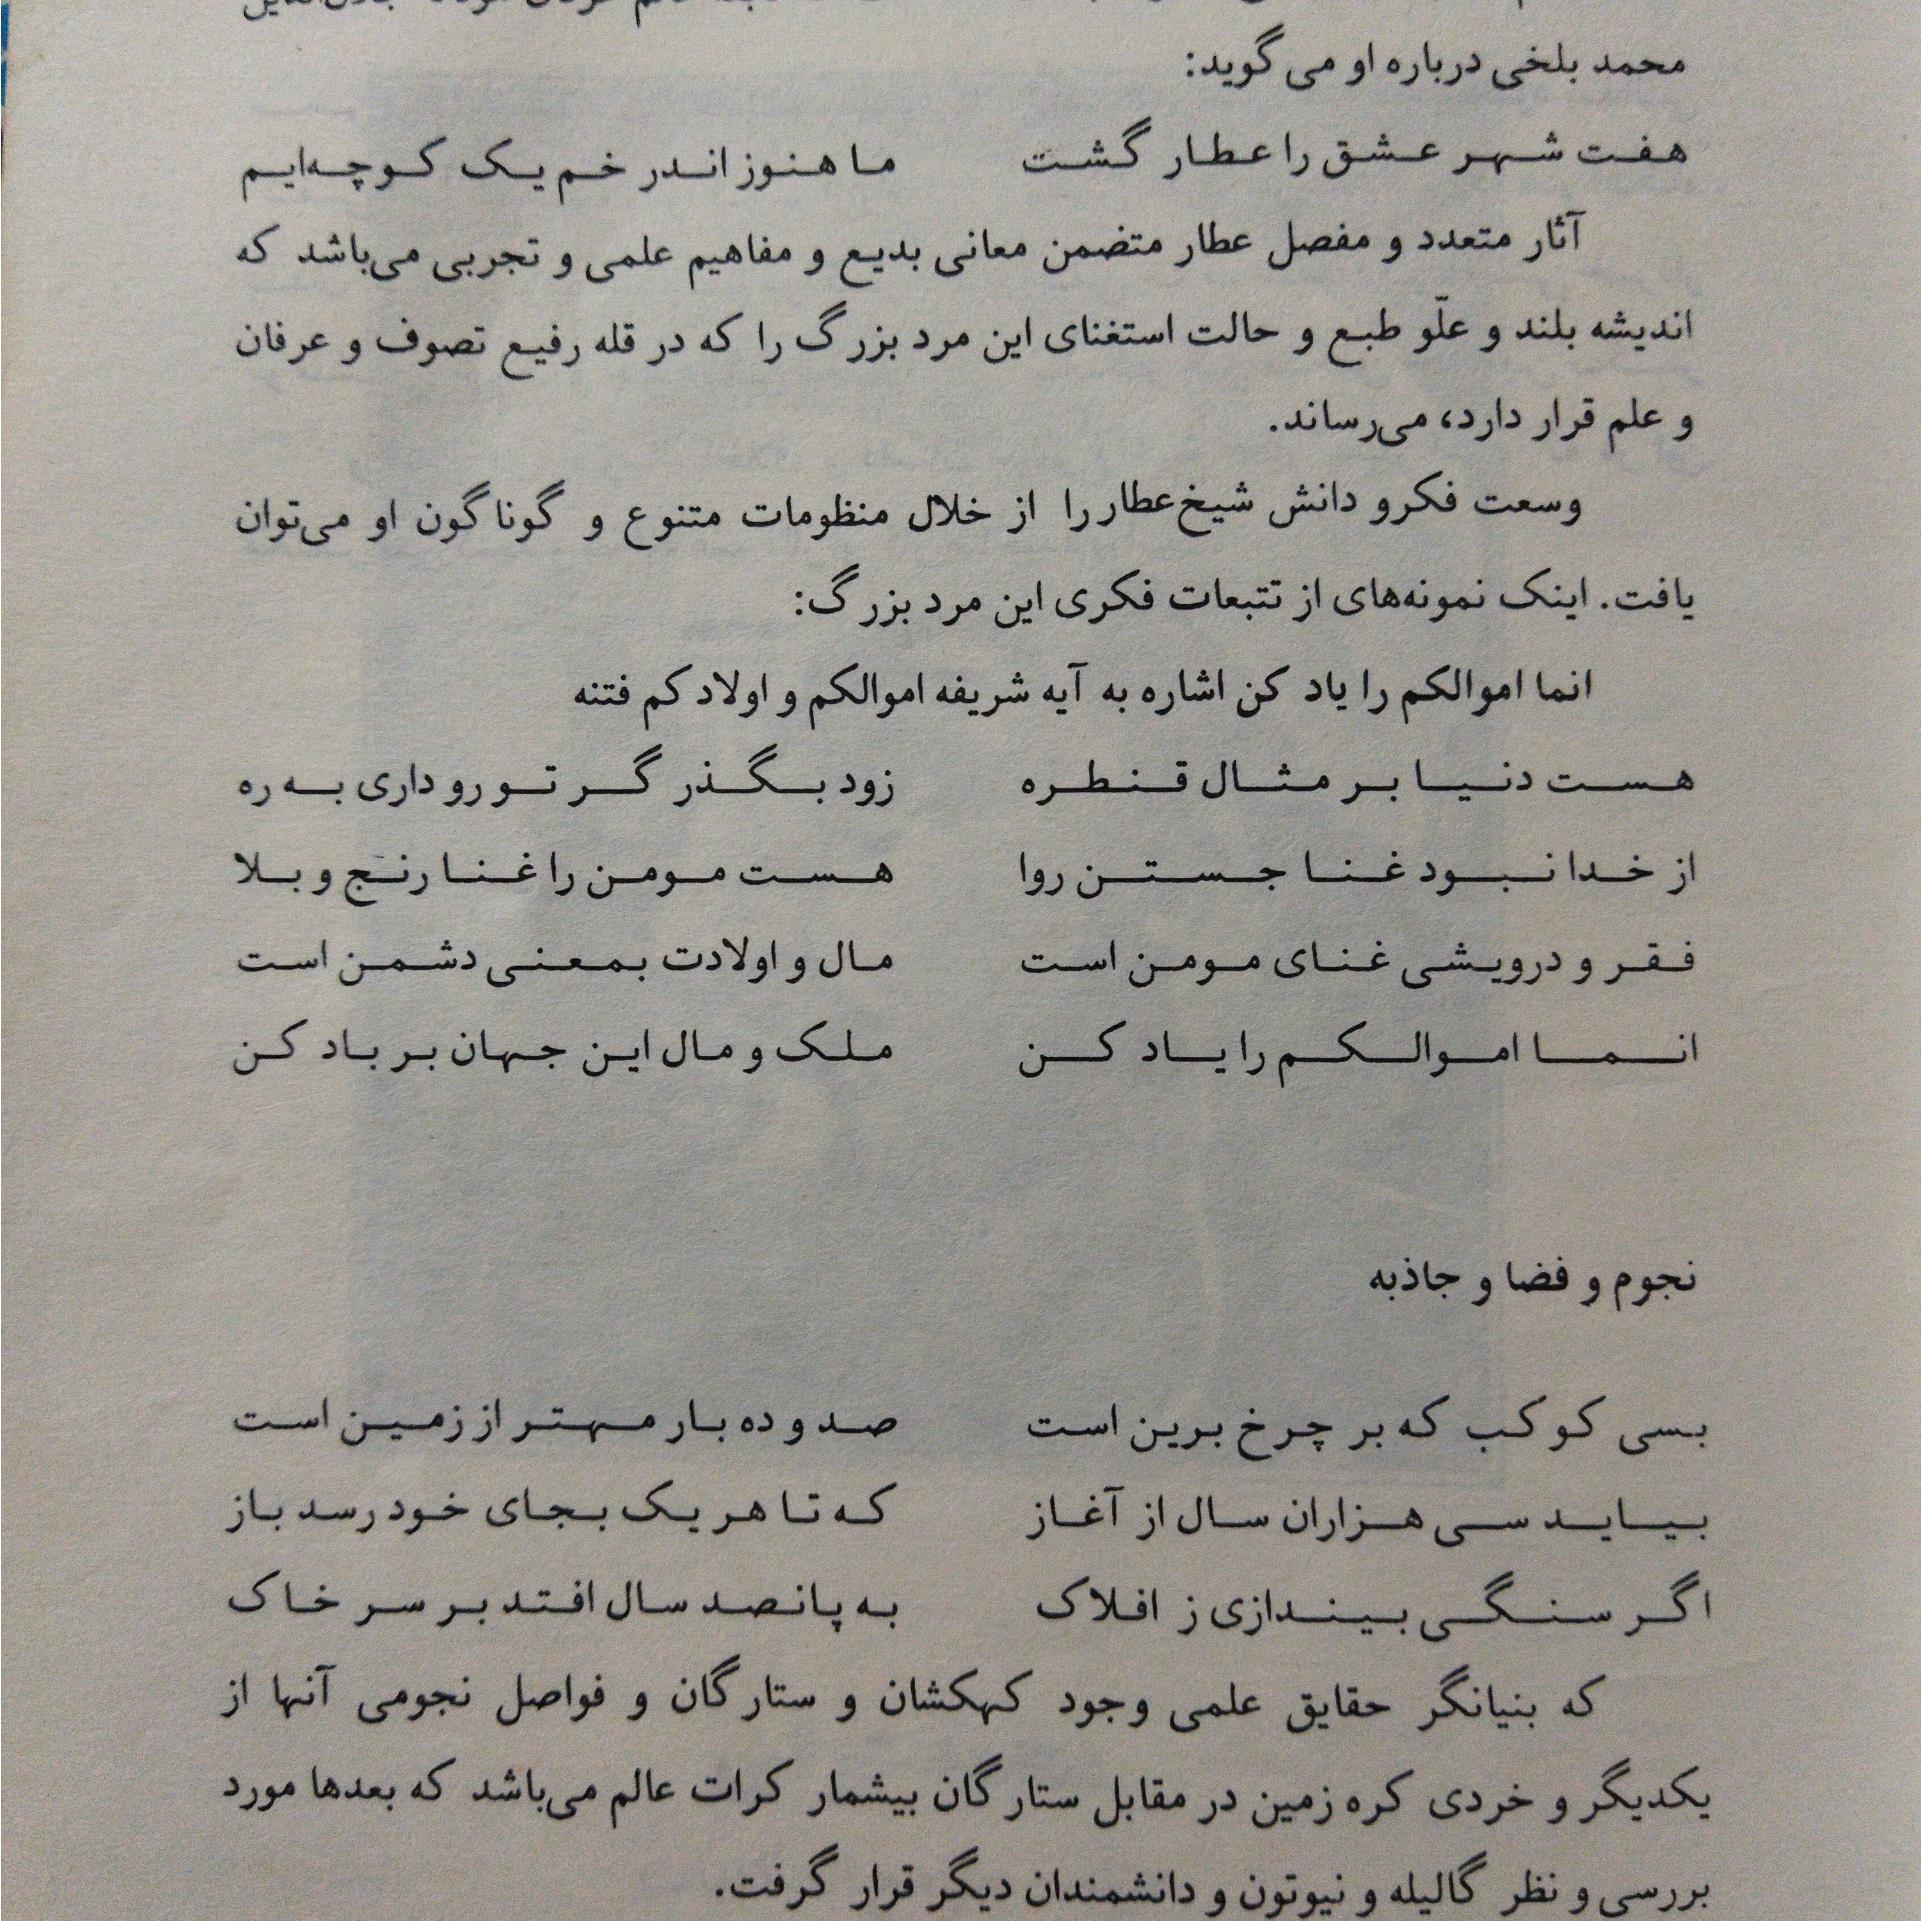 محمد بلخی درباره او می گوید:
هفت شهر عشق را عطار گشت ما هنوز اندر خم یک کوچه‌ایم
آثار متعدد و مفصل عطار متضمن معانی بدیع و مفاهیم علمی و تجربی می‌باشد که
اندیشه بلند و علّو طبع و حالت استغنای این مرد بزرگ را که در قله رفیع تصوف و عرفان
و علم قرار دارد، می‌رساند.
وسعت فکر و دانش شیخ عطار را از خلال منظومات متنوع و گوناگون او می‌توان
یافت. اینک نمونه‌های از تتبعات فکری این مرد بزرگ:
انما اموالکم را یاد کن اشاره به آیه شریفه اموالکم و اولاد کم فتنه
هست دنیا بر مثال قنطره زود بگذر گر تو رو داری به ره
از خدا نبود غنا جستن روا هست مومن را غنا رنج و بلا
فقر و درویشی غنای مومن است مال و اولادت بمعنی دشمن است
انما اموالکم را یاد کن ملک و مال این جهان بر باد کن
نجوم و فضا و جاذبه
بسی کوکب که بر چرخ برین است صد و ده بار مهتر از زمین است
بیاید سی هزاران سال از آغاز که تا هر یک بجای خود رسد باز
اگر سنگی بیندازی ز افلاک به پانصد سال افتد بر سر خاک
که بنیانگر حقایق علمی وجود کهکشان و ستارگان و فواصل نجومی آنها از
یکدیگر و خردی کره زمین در مقابل ستارگان بیشمار کرات عالم می‌باشد که بعدها مورد
بررسی و نظر گالیله و نیوتون و دانشمندان دیگر قرار گرفت.